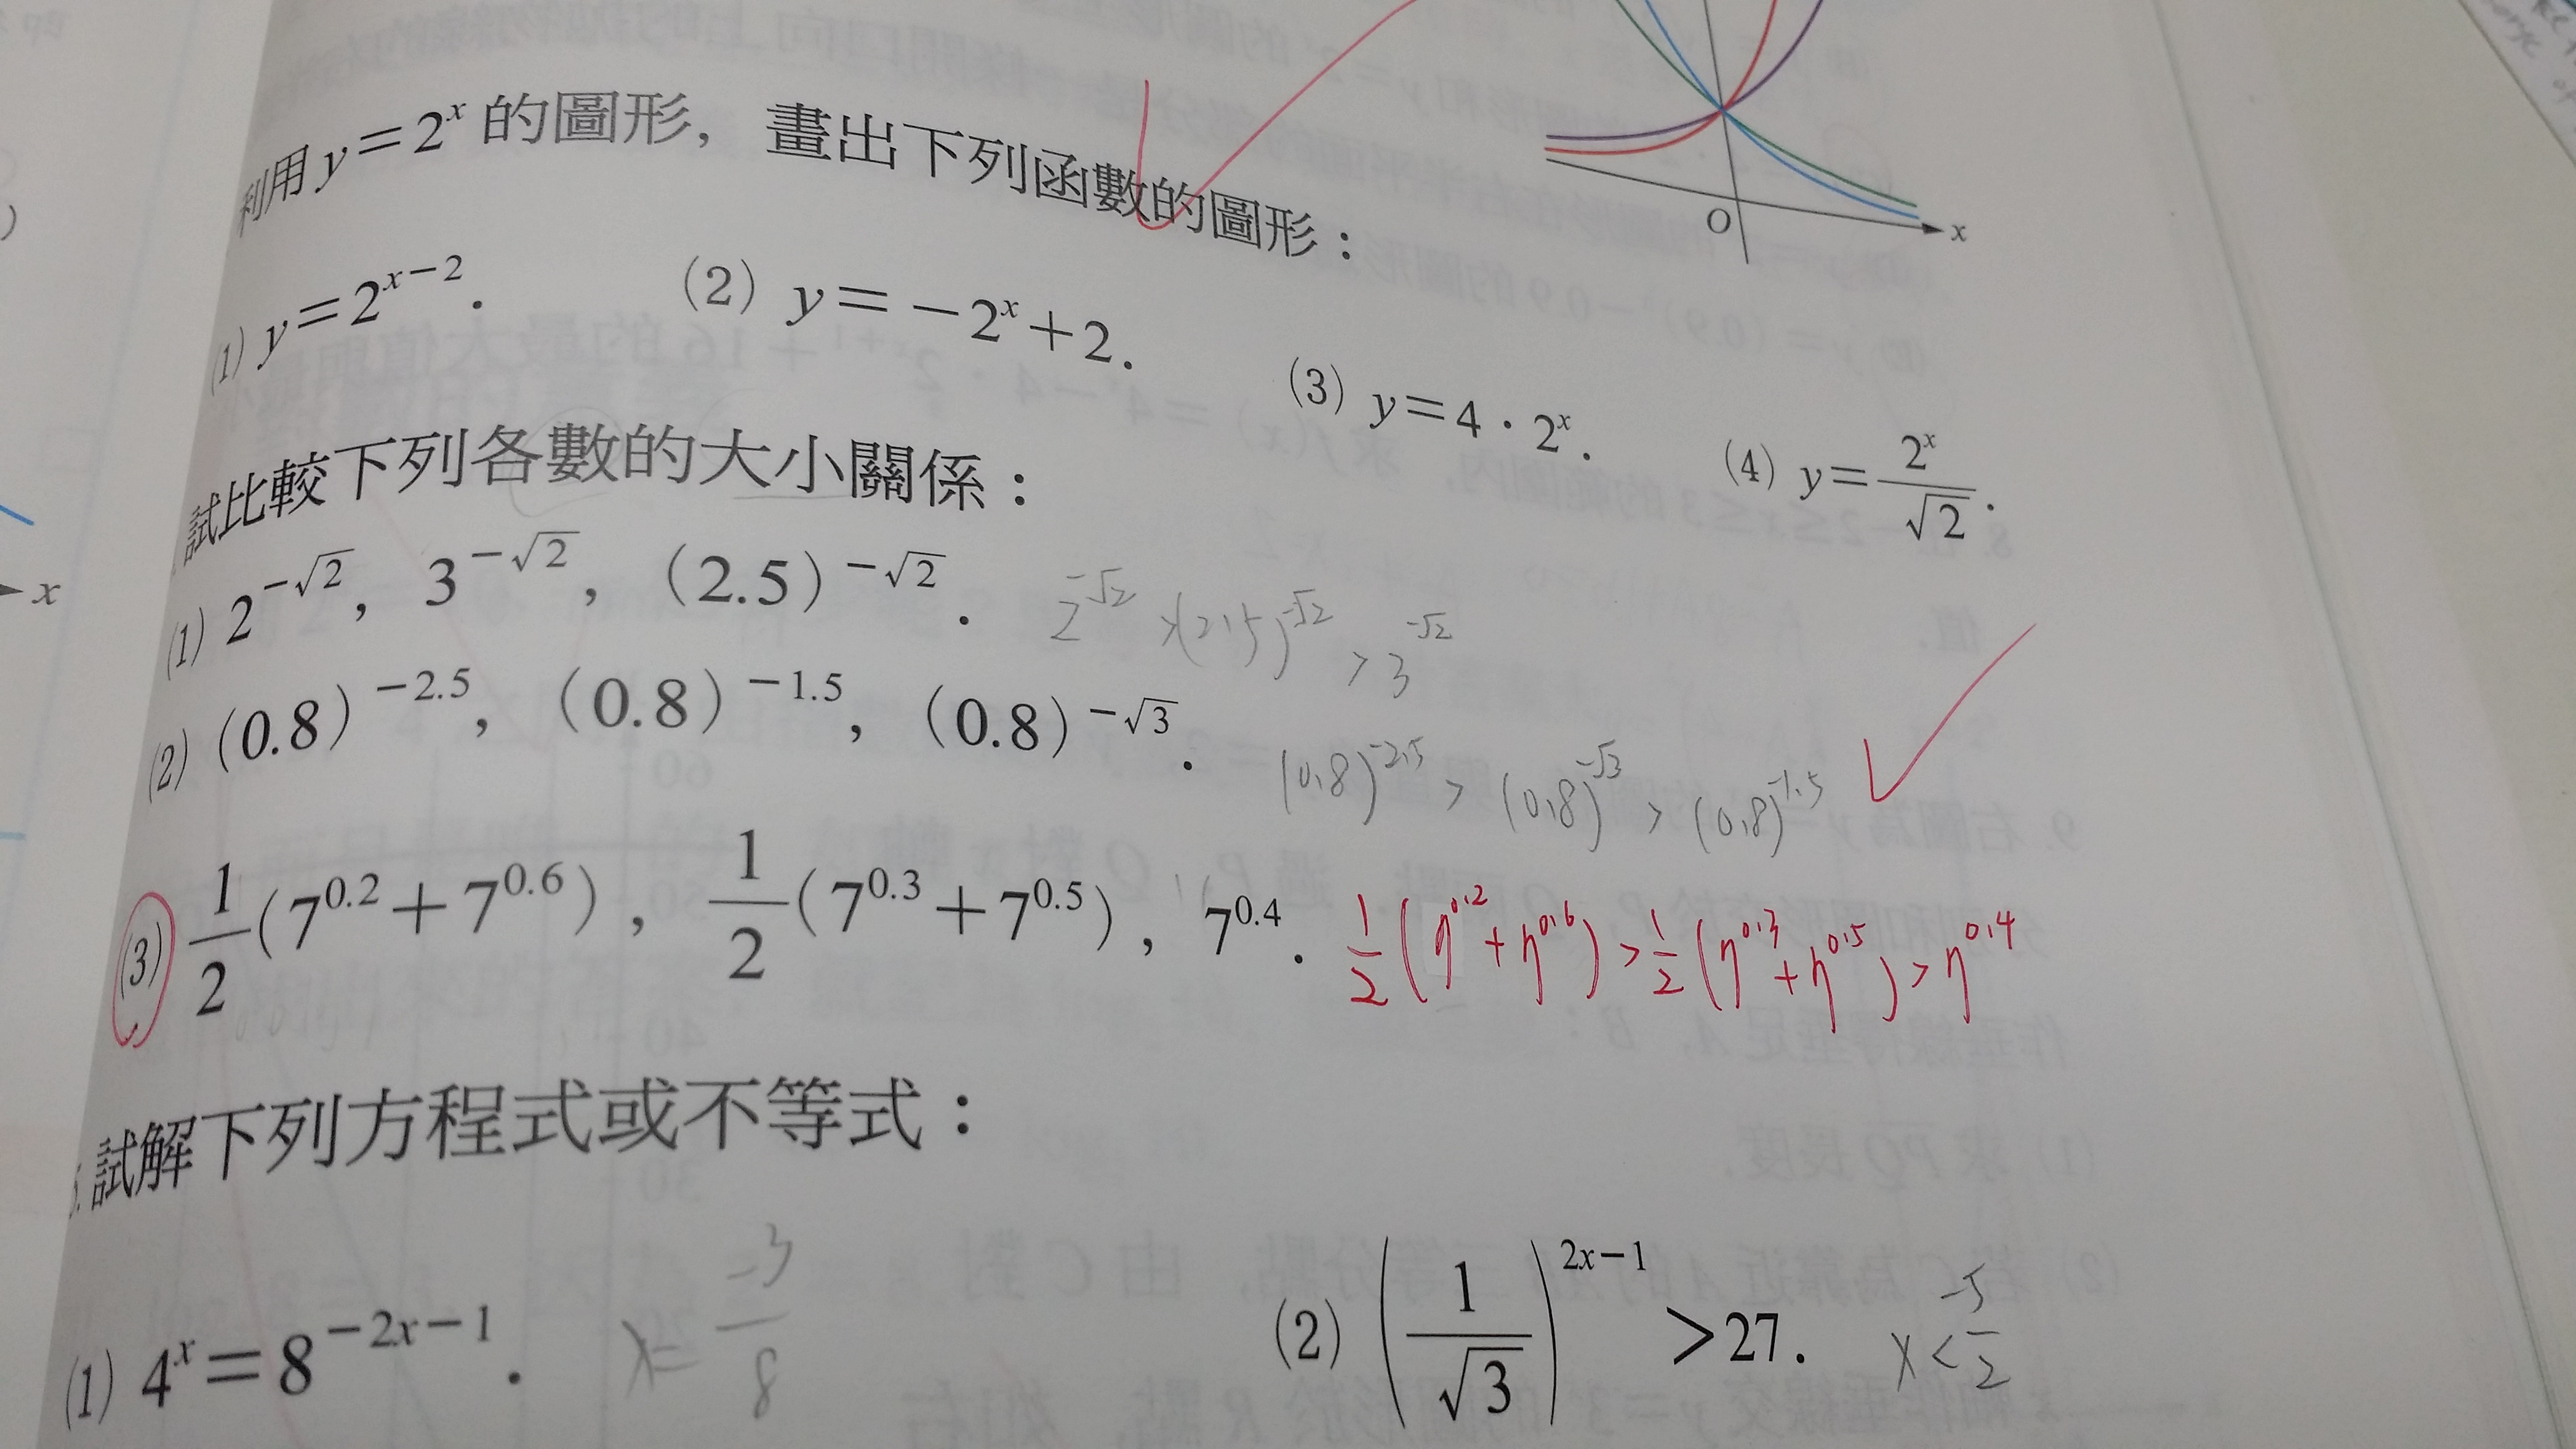 O x
利用 y＝2^x 的圖形，畫出下列函數的圖形：
(1) y＝2^{x－2}. (2) y＝－2^x＋2. (3) y＝4．2^x. (4) y＝\frac{2^x}{\sqrt{2}}.
試比較下列各數的大小關係：
(1) 2^{－\sqrt{2}}，3^{－\sqrt{2}}，(2.5)^{－\sqrt{2}}. 2^{-\sqrt{2}} > (2.5)^{-\sqrt{2}} > 3^{-\sqrt{2}}
x
(2) (0.8)^{－2.5}，(0.8)^{－1.5}，(0.8)^{－\sqrt{3}}. (0.8)^{-2.5} > (0.8)^{-\sqrt{3}} > (0.8)^{-1.5}
(3) \frac{1}{2}(7^{0.2}＋7^{0.6})，\frac{1}{2}(7^{0.3}＋7^{0.5})，7^{0.4}. \frac{1}{2}(7^{0.2}+7^{0.6}) > \frac{1}{2}(7^{0.3}+7^{0.5}) > 7^{0.4}
試解下列方程式或不等式：
(1) 4^x＝8^{－2x－1}. x=\frac{-3}{8} (2) (\frac{1}{\sqrt{3}})^{2x－1}＞27. x<\frac{-5}{2}